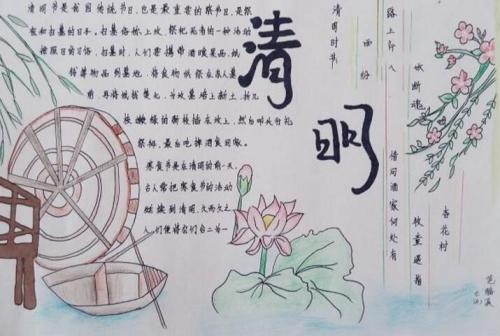 清明节是我国传统节日,也是最重要的祭节日,是祭
祖和扫墓的日子。扫墓俗称上坟,祭祀死者的一种活动
按照旧的习俗,扫墓时,人们要携带酒食果品、纸
钱等物品到墓地,将食物供祭在亲人墓
前,再将纸钱焚化,为坟墓培上新土,折几
枝嫩绿的新枝插在坟上,然后叩头行礼
祭拜,最后吃掉酒食回家。
寒食节是在清明的前一天,
古人常把寒食节的活动
延续到清明,久而久之,
人们便将它们合二为一
清明
清明时节
雨纷
路上行人
欲断魂
借问酒家何处有
牧童遥指
杏花村